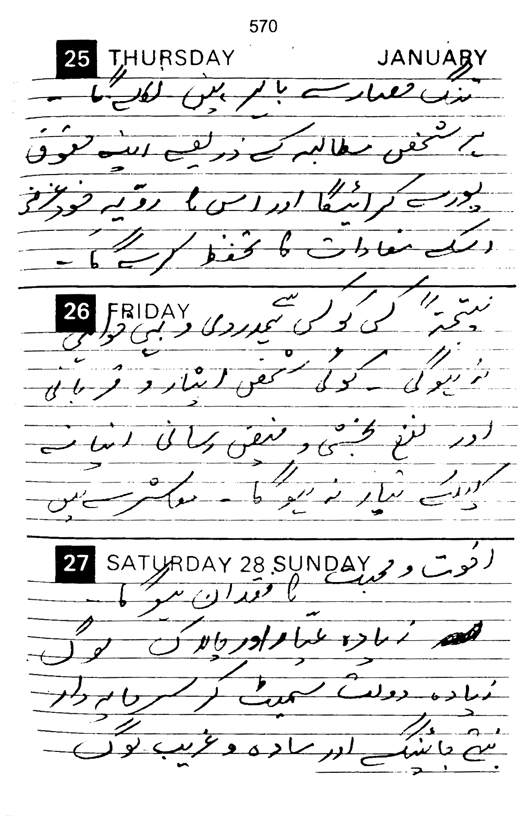 570
25 THURSDAY JANUARY
تنگ حصار سے باہر نہیں نکالے گا ۔
ہر شخص مطالبہ کے ذریعے اپنے حقوق
پورے کرائیگا اور اس کا رویّہ خود غرضی
اسکے مفادات کا تحفظ کرے گا ۔
26 FRIDAY
نتیجۃً کسی کو کسی سے ہمدردی و نبی خواہی
نہ ہوگی ۔ کوئی شخص ایثار و قربانی
اور نفع بخشی و فیض رسانی اپنانے
کیلئے تیار نہ ہو گا ۔ معاشرے میں
27 SATURDAY 28 SUNDAY
اخوت و محبت کا فقدان ہو گا ۔
زیادہ عیّار اور چالاک لوگ
زیادہ دولت سمیٹ کر سرمایہ دار
بنتے جائینگے اور سادہ و غریب لوگ